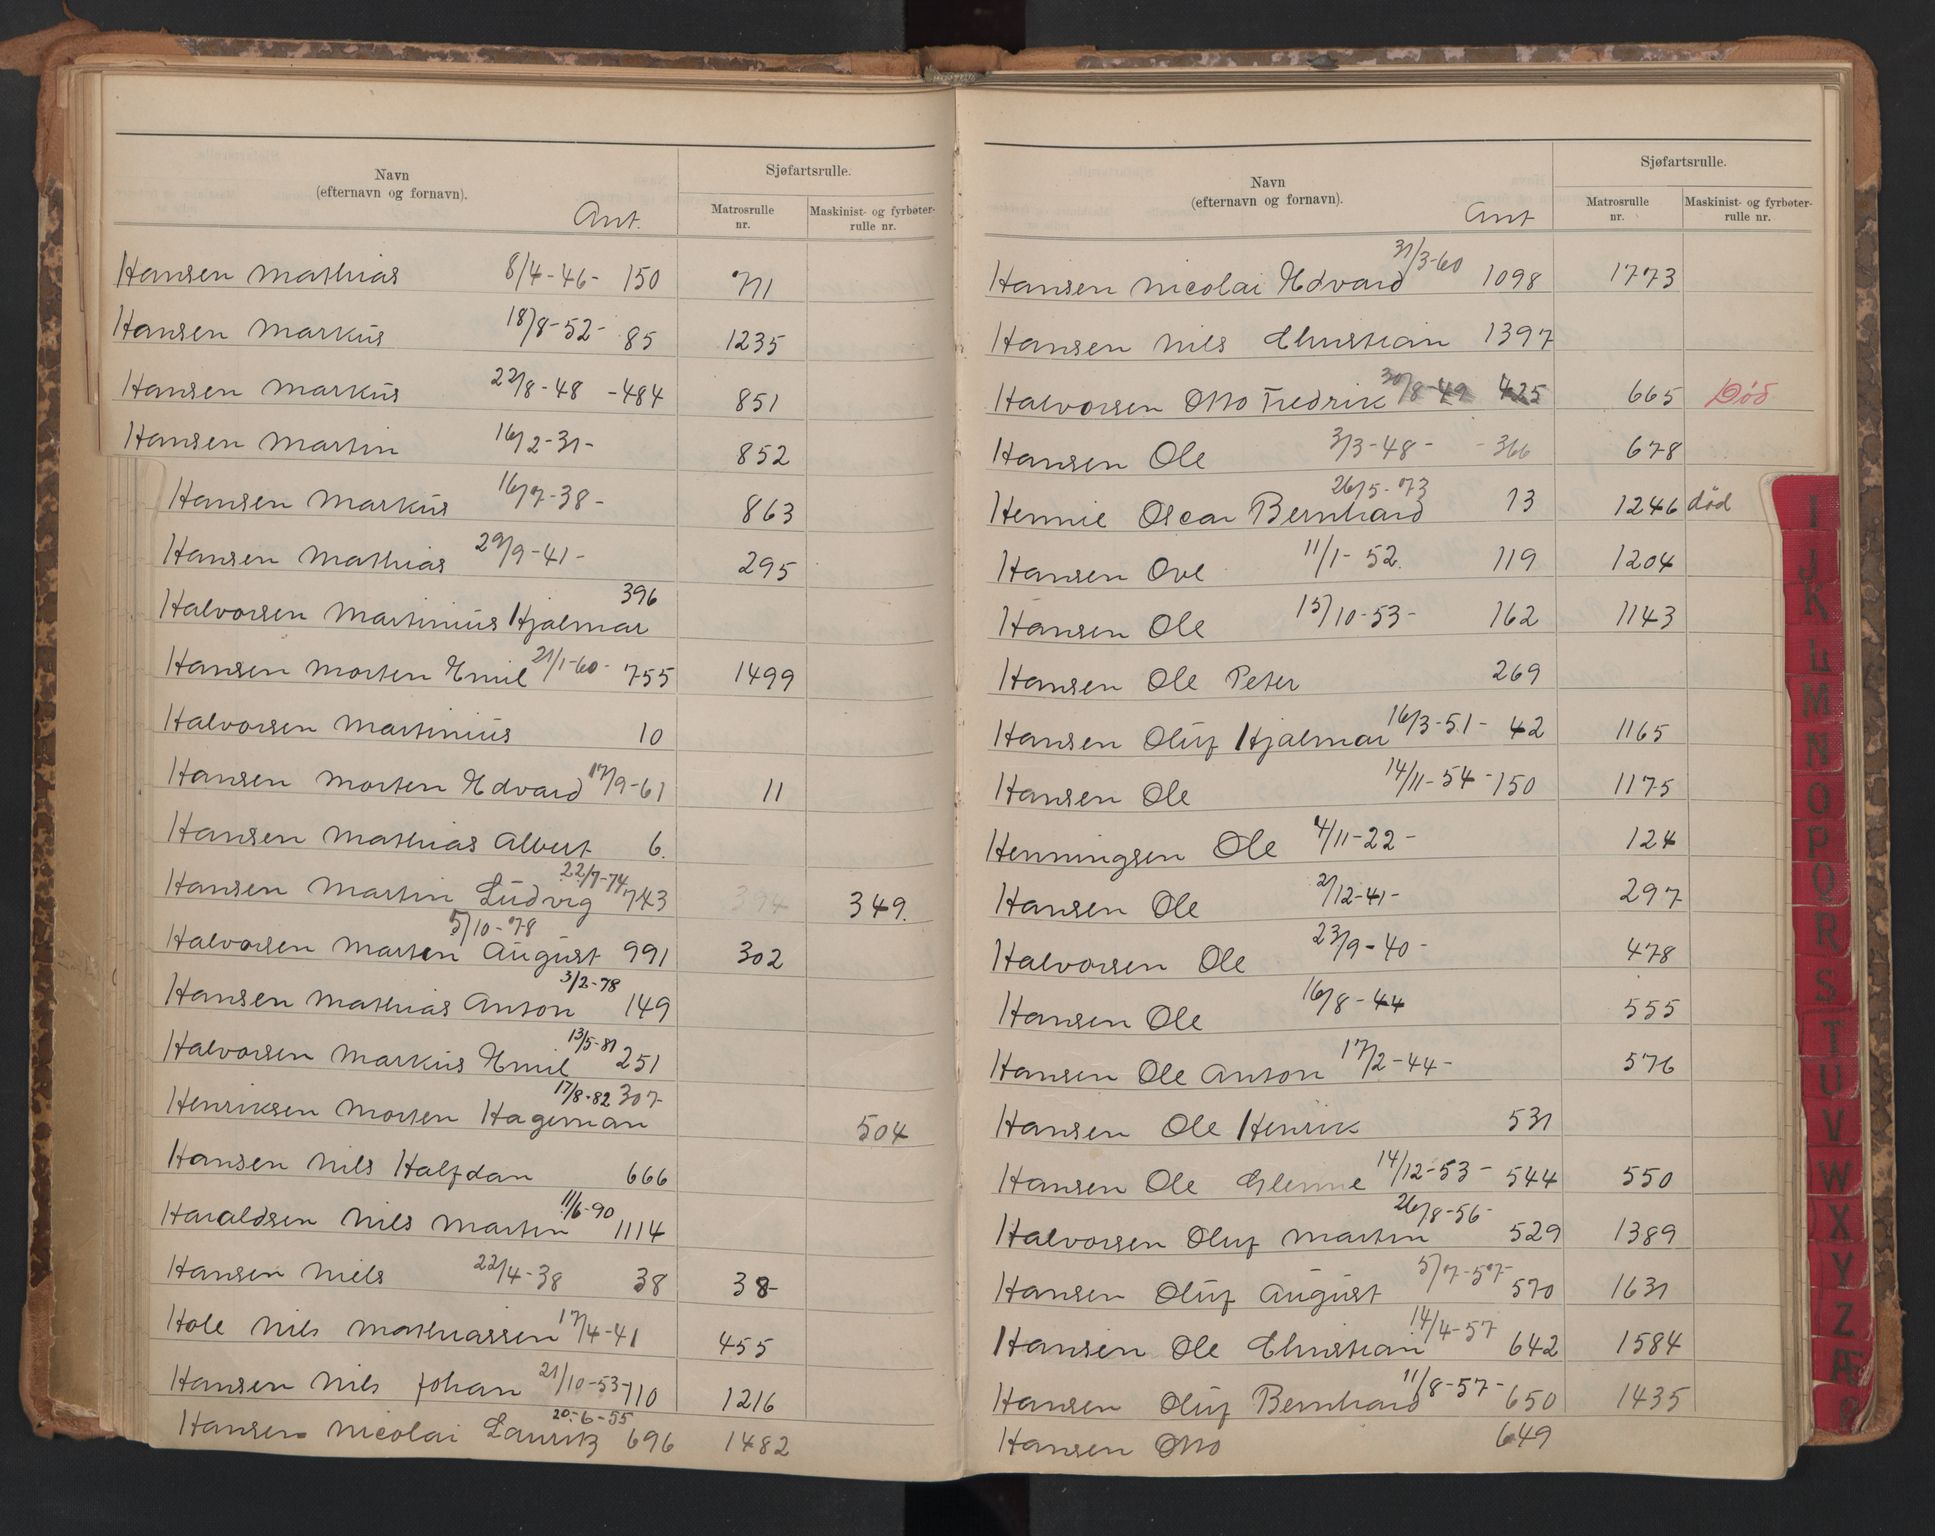 Navn
(efternavn og fornavn).
Ant.
Sjøfartsrulle.
Matrosrulle nr.
Maskinist- og fyrbøter-rulle nr.
Hansen Mathias 8/4-46- 150 771
Hansen Markus 18/8-52- 85 1235
Hansen Markus 22/8-48 -484 851
Hansen Martin 16/2-31- 852
Hansen Markus 16/7-38- 863
Hansen Mathias 29/9-41- 295
Halvorsen Martinius Hjalmar 396
Hansen Morten Emil 21/1-60- 755 1499
Halvorsen Martinius 10
Hansen Morten Edvard 17/9-61 11
Hansen Mathias Albert 6.
Hansen Martin Ludvig 22/7-74 743 394 349.
Halvorsen Marten August 5/10-78 991 302
Hansen Mathias Anton 3/2-78 149
Halvorsen Markus Emil 13/5-81 251
Henriksen Morten Hageman 17/8-82 307 504
Hansen Nils Halfdan 666
Haraldsen Nils Martin 11/6-90 1114
Hansen Niels 22/4-38 38 38-
Hole Nils Mathiassen 17/4-41 455
Hansen Nils Johan 21/10-53- 110 1216
Hansen Nicolai Lauritz 20-6-55 696 1482
Navn
(efternavn og fornavn).
Ant
Sjøfartsrulle.
Matrosrulle nr.
Maskinist- og fyrbøter-rulle nr.
Hansen Nicolai Edvard 31/3-60 1098 1773
Hansen Nils Christian 1397
Halvorsen Otto Fredrik 30/8-49 425 665 Død
Hansen Ole 3/3-48- -366 678
Hennie Oscar Bernhard 26/5-73 13 1246 død
Hansen Ove 11/1-52. 119 1204
Hansen Ole 15/10-53- 162 1143
Hansen Ole Peter 269
Hansen Oluf Hjalmar 16/3-51- 42 1165
Hansen Ole 14/11-54- 150 1175
Henningsen Ole 4/11-22- 124
Hansen Ole 2/12-41- 297
Halvorsen Ole 23/9-40- 478
Hansen Ole 16/8-44 555
Hansen Ole Anton 17/2-44- 576
Hansen Ole Henrik 531
Hansen Ole Glenne 14/12-53- 544 550
Halvorsen Oluf Martin 26/8-56- 529 1389
Hansen Oluf August 5/7-57- 570 1631
Hansen Ole Christian 14/4-57 642 1584
Hansen Oluf Bernhard 11/8-57- 650 1435
Hansen Otto 649
I
J
K
L
M
N
O
P
Q
R
S
T
U
V
W
X
Y
Z
Æ
Ø